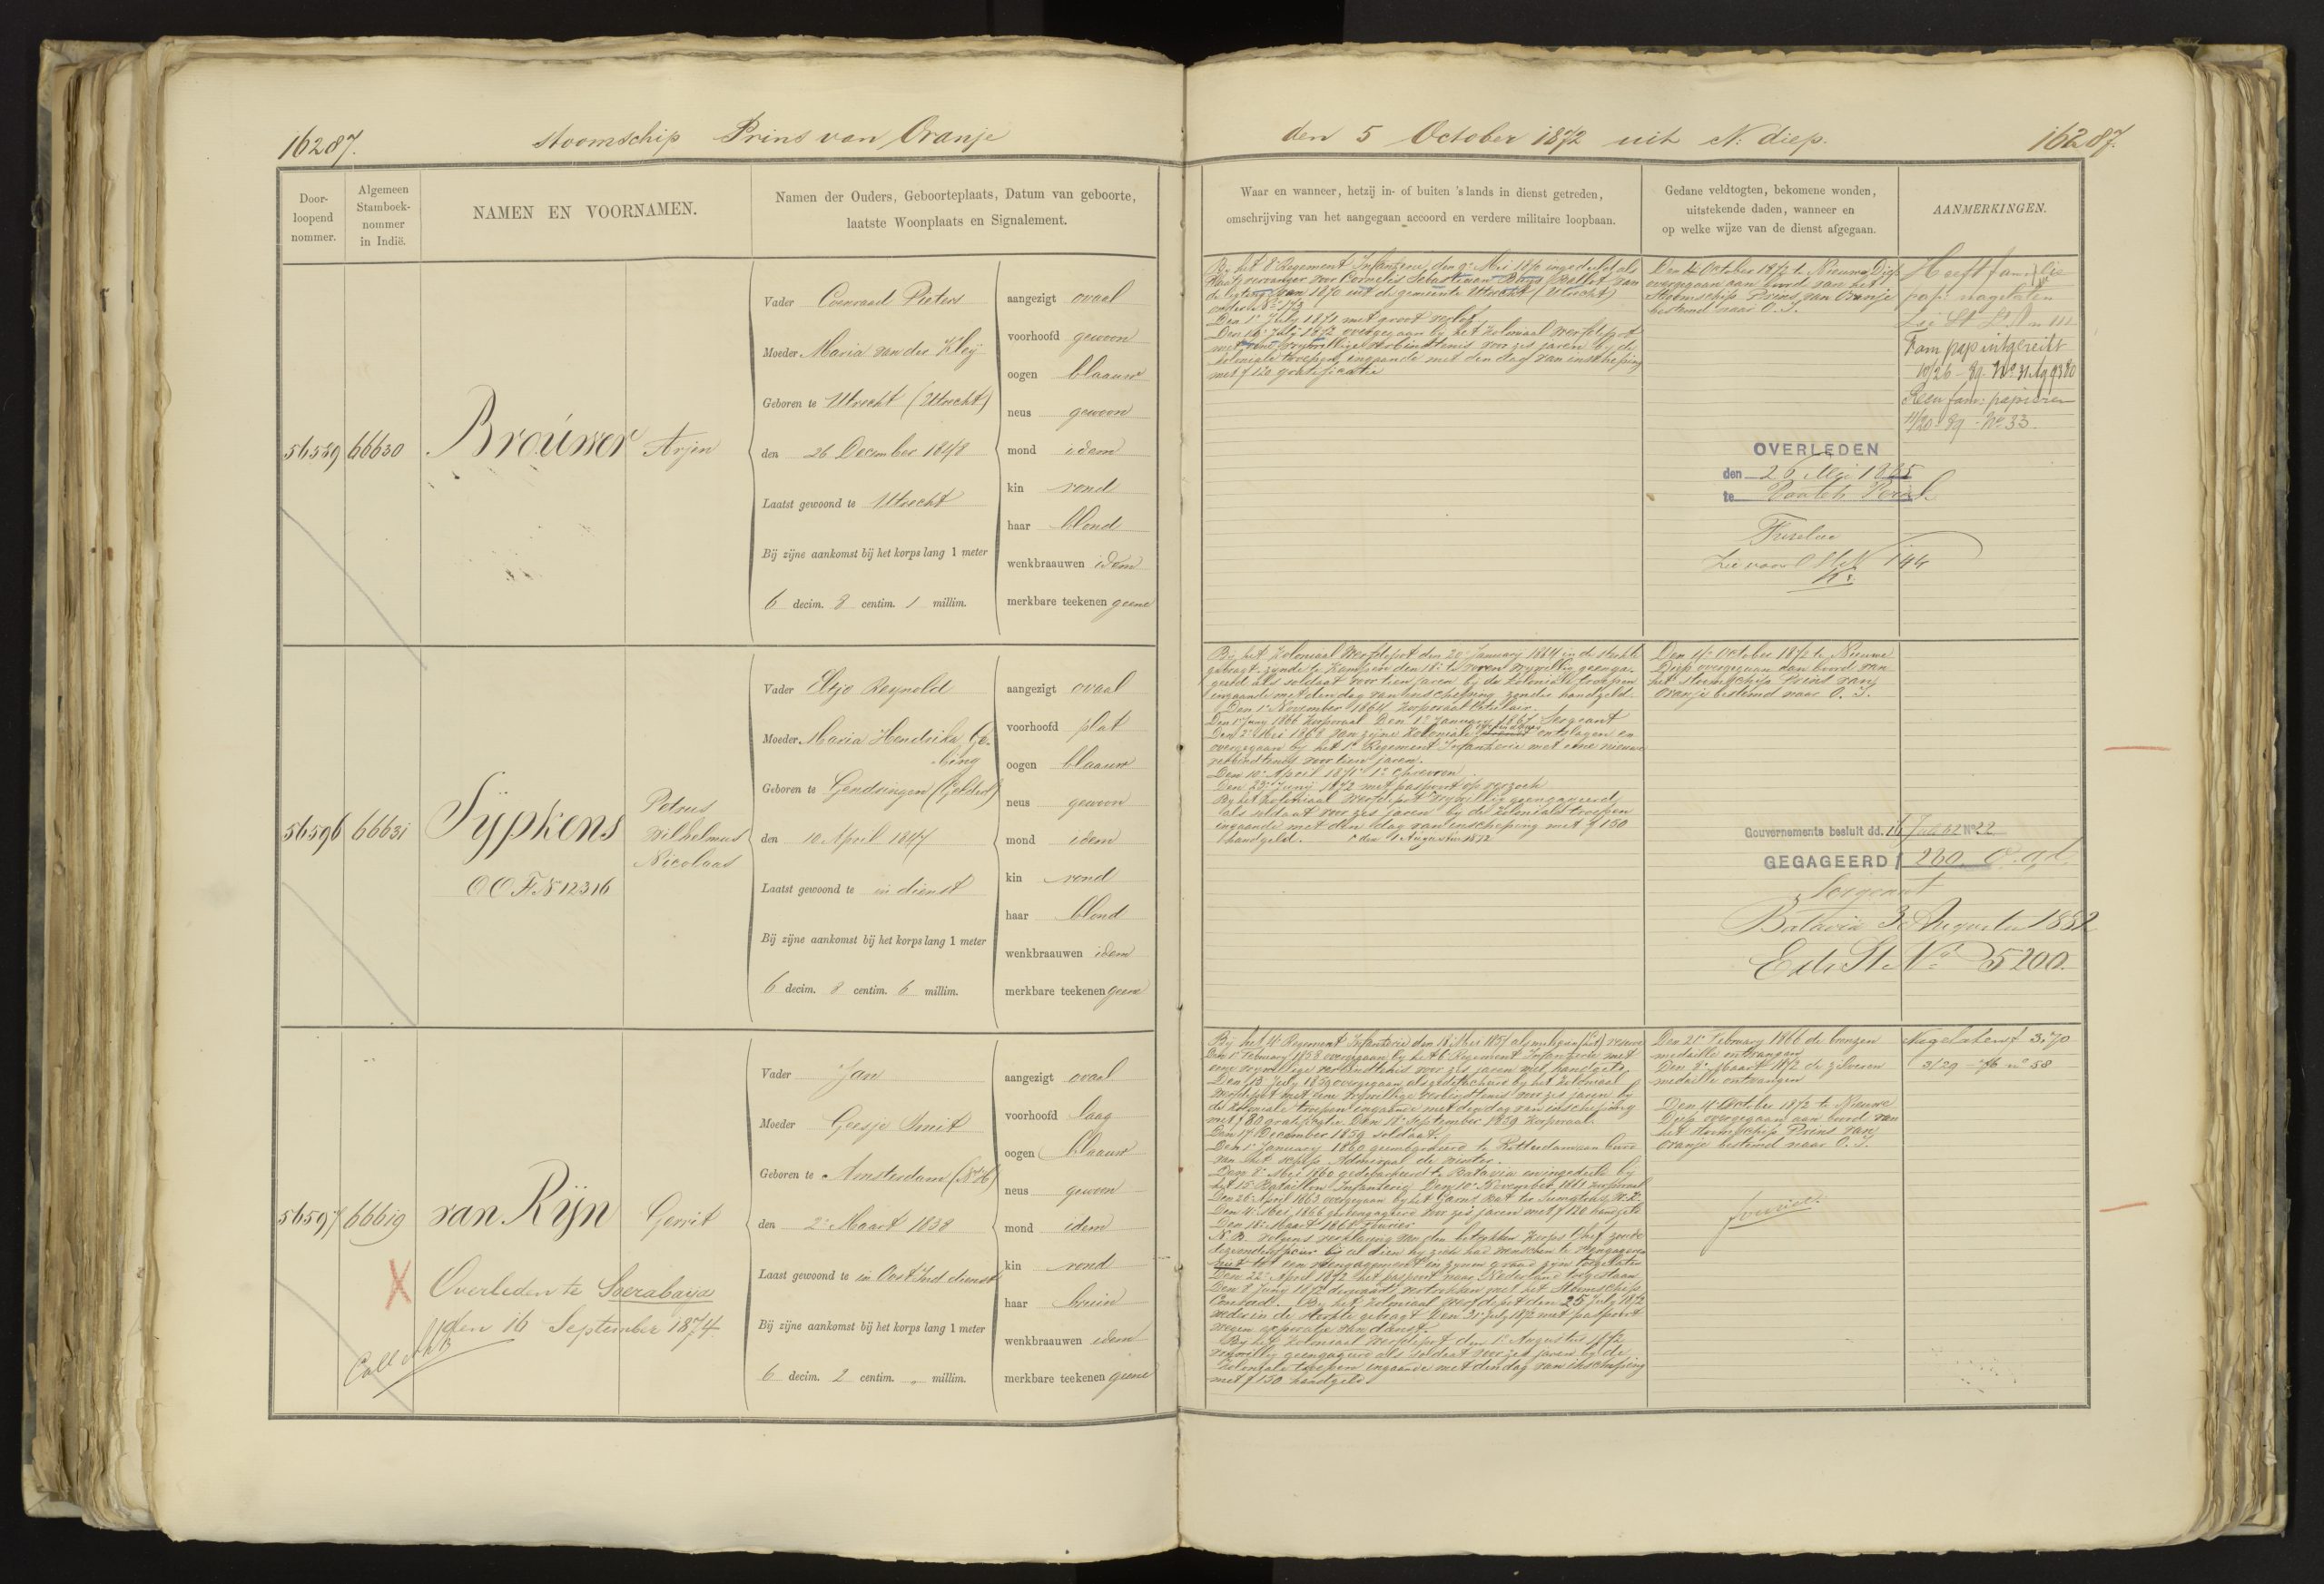 16287.
stoomschip Prins van Oranje
Door-
loopend
nommer.
Algemeen
Stamboek-
nommer
in Indië.
NAMEN EN VOORNAMEN.
Namen der Ouders, Geboorteplaats, Datum van geboorte,
laatste Woonplaats en Signalement.
66630
Brouwer
Arjen
Vader Coenraad Pieters
Moeder Maria van der
Geboren te Utrecht (Utrecht)
den 26 December 1848
Laatst gewoond te Utrecht
Bij zijne aankomst bij het korps lang 1 meter
6 decim. 8 centim. 1 millim.
aangezigt ovaal
voorhoofd gewoon
oogen blaauw
neus gewoon
mond idem
kin rond
haar blond
wenkbraauwen idem
merkbare teekenen geene
56596
66631
Sijpkens
OOF. No 12316
Petrus
Wilhelmus
Nicolaas
Vader Eltjo Reynold
Moeder Maria Hendrika Ge-
bing
Geboren te Gendringen (Gelderl)
den 10 April 1847
Laatst gewoond te in dienst
Bij zijne aankomst bij het korps lang 1 meter
6 decim. 8 centim. 6 millim.
aangezigt ovaal
voorhoofd plat
oogen blaauw
neus gewoon
mond idem
kin rond
haar blond
wenkbraauwen idem
merkbare teekenen geene
56597
66619
van Rijn
Gerrit
Overleden te Soerabaya
den 16 September 1874
Vader Jan
Moeder Geesje Smit
Geboren te Amsterdam (N-H)
den 2e Maart 1838
Laatst gewoond te in Oost Ind. dienst
Bij zijne aankomst bij het korps lang 1 meter
6 decim. 2 centim. " millim.
aangezigt ovaal
voorhoofd laag
oogen blaauw
neus gewoon
mond idem
kin rond
haar bruin
wenkbraauwen idem
merkbare teekenen geene
den 5 October 1872 uit N. diep.
16287.
Waar en wanneer, hetzij in- of buiten 's lands in dienst getreden,
omschrijving van het aangegaan accoord en verdere militaire loopbaan.
Gedane veldtogten, bekomene wonden,
uitstekende daden, wanneer en
op welke wijze van de dienst afgegaan.
AANMERKINGEN.
Bij het 8e Regement Infanterie den 9e Mei 1870 ingedeeld als
Plaatsvervanger voor Cornelis Sebastiaan
de ligting van 1870 uit de gemeente Utrecht (Utrecht)
onder No 179
Den 1e July 1871 met groot verlof
Den July 1872 overgegaan bij het Koloniaal Werfdepot
met eene vrywillige verbindtenis voor zes jaren bij de
koloniale troepen, ingaande met den dag van inscheping
met f 120 gratificatie
October 1872 te Nieuwe Diep
overgegaan aan boord van het
Stoomschip Prins van Oranje
bestemd naar O. I.
Heeft fam
pap: nagelaten
Fam pap uitgereikt
Geen fam: papieren
11/20 - 89 - No 33.
OVERLEDEN
den 26 Mei
te
Fuselier
Bij het Koloniaal Werfdepot den 20e January 1864 in de sterkte
gebragt, zynde te Kampen den 18e te voren vrywillig geenga-
geerd als soldaat voor tien jaren bij de koloniale troepen
ingaande met den dag van inscheping zonder handgeld.
Den 1e November 1864 Korporaal titulair.
Den 1e Juny 1866 Korporaal. Den 1e January 1867 Sergeant
Den 2e Mei 1868 van zijne koloniale verbindtenis ontslagen en
overgegaan bij het 1e Regement Infanterie met eene nieuwe
verbindtenis voor tien jaren.
Den 10e April 1871
Den 23e Juny 1872 met paspoort op verzoek
Bij het koloniaal Werfdepot vrywillig geengageerd
als soldaat voor zes jaren bij de koloniale troepen
ingaande met den dag van inscheping met f 150
handgeld. den 1 Augustus 1872
Den 4e October 1872 te Nieuwe
Diep overgegaan aan boord van
het stoomschip Prins van
Oranje bestemd naar O. I.
Gouvernements besluit dd. 16 Juli 82 No 22
GEGAGEERD f 230.
Sergeant
Batavia 3 Augustus 1882
No 5200.
Bij het 4e Regement Infanterie den
Den 1e February 1858 overgegaan bij het 6e Regement Infanterie met
eene vrywillige verbindtenis voor zes jaren met handgeld
Den 13 July 1859 overgegaan als gedetacheerd bij het koloniaal
werfdepot met eene vrywillige verbindtenis voor zes jaren bij
de koloniale troepen ingaande met den dag van inscheping
met f 80 gratificatie. Den 11e September 1859 Korporaal.
Den 17e December 1859 soldaat.
Den 1e January 1860 geembarkeerd te Rotterdam aan boord
van het schip Admiraal de Winter.
Den 8e Mei 1860 gedebarkeerd te Batavia en ingedeeld bij
het 15e Bataillon Infanterie. Den 10e November 1861 Korporaal
Den 26e April 1863 overgegaan bij het Garns Bat. ter Sumatra's W. K.
Den 4e Mei 1866 geëngageerd voor zes jaren met f 120 handgeld
Den 18e Maart 1868 Fourier
Den 22e April 1872 het paspoort naar Nederland toegestaan
Den 8 Juny 1872 vertrokken met het Stoomschip
Conrad. Bij het koloniaal werfdepot den 25 July 1872
weder in de sterkte gebragt. Den 31e July 1872 met paspoort
wegens expiratie van dienst.
Bij het koloniaal werfdepot den 1e Augustus 1872
vrywillig geengageerd als soldaat voor zes jaren bij de
koloniale troepen ingaande met den dag van inscheping
met f 150 handgeld
Den 21e February 1866 de bronzen
medaille ontvangen
Den 8e Maart 1872 de zilveren
medaille ontvangen
Den 4e October 1872 te Nieuwe
Diep overgegaan aan boord van
het stoomschip Prins van
Oranje bestemd naar O. I.
fourier
Nagelaten f 3.70
3/29 - 76 no 58